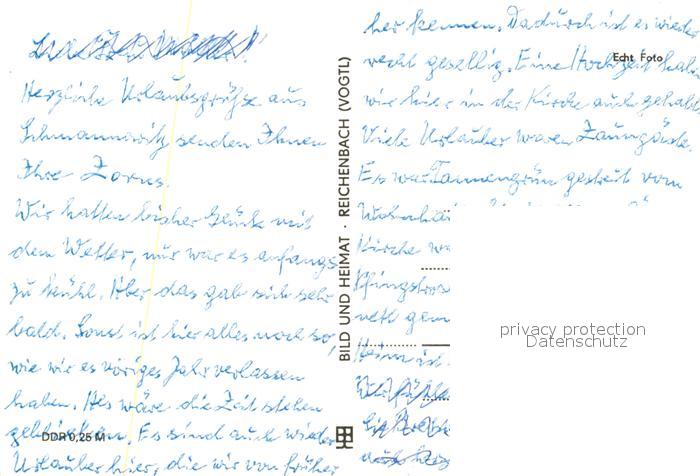 Herzliche Urlaubsgrüße aus
Schmannewitz senden Ihnen
Ihre Zorns.
Wir hatten bisher Glück mit
dem Wetter, nur war es anfangs
zu kühl. Aber das gab sich sehr
bald. Sonst ist hier alles noch so,
wie wir es voriges Jahr verlassen
haben. Als wäre die Zeit stehen
geblieben. Es sind auch wieder
Urlauber hier, die wir von früher
DDR 0,25 M
BILD UND HEIMAT · REICHENBACH (VOGTL)
her kennen. Dadurch ist es wieder
recht gesellig. Eine Hochzeit hab.
Echt Foto
wir hier in der Kirche auch gehabt
Viele Urlauber waren Zaungäste.
Es war Tannengrün gestreut vom
Kirche
Pfingstros
Heim ist
privacy protection
Datenschutz